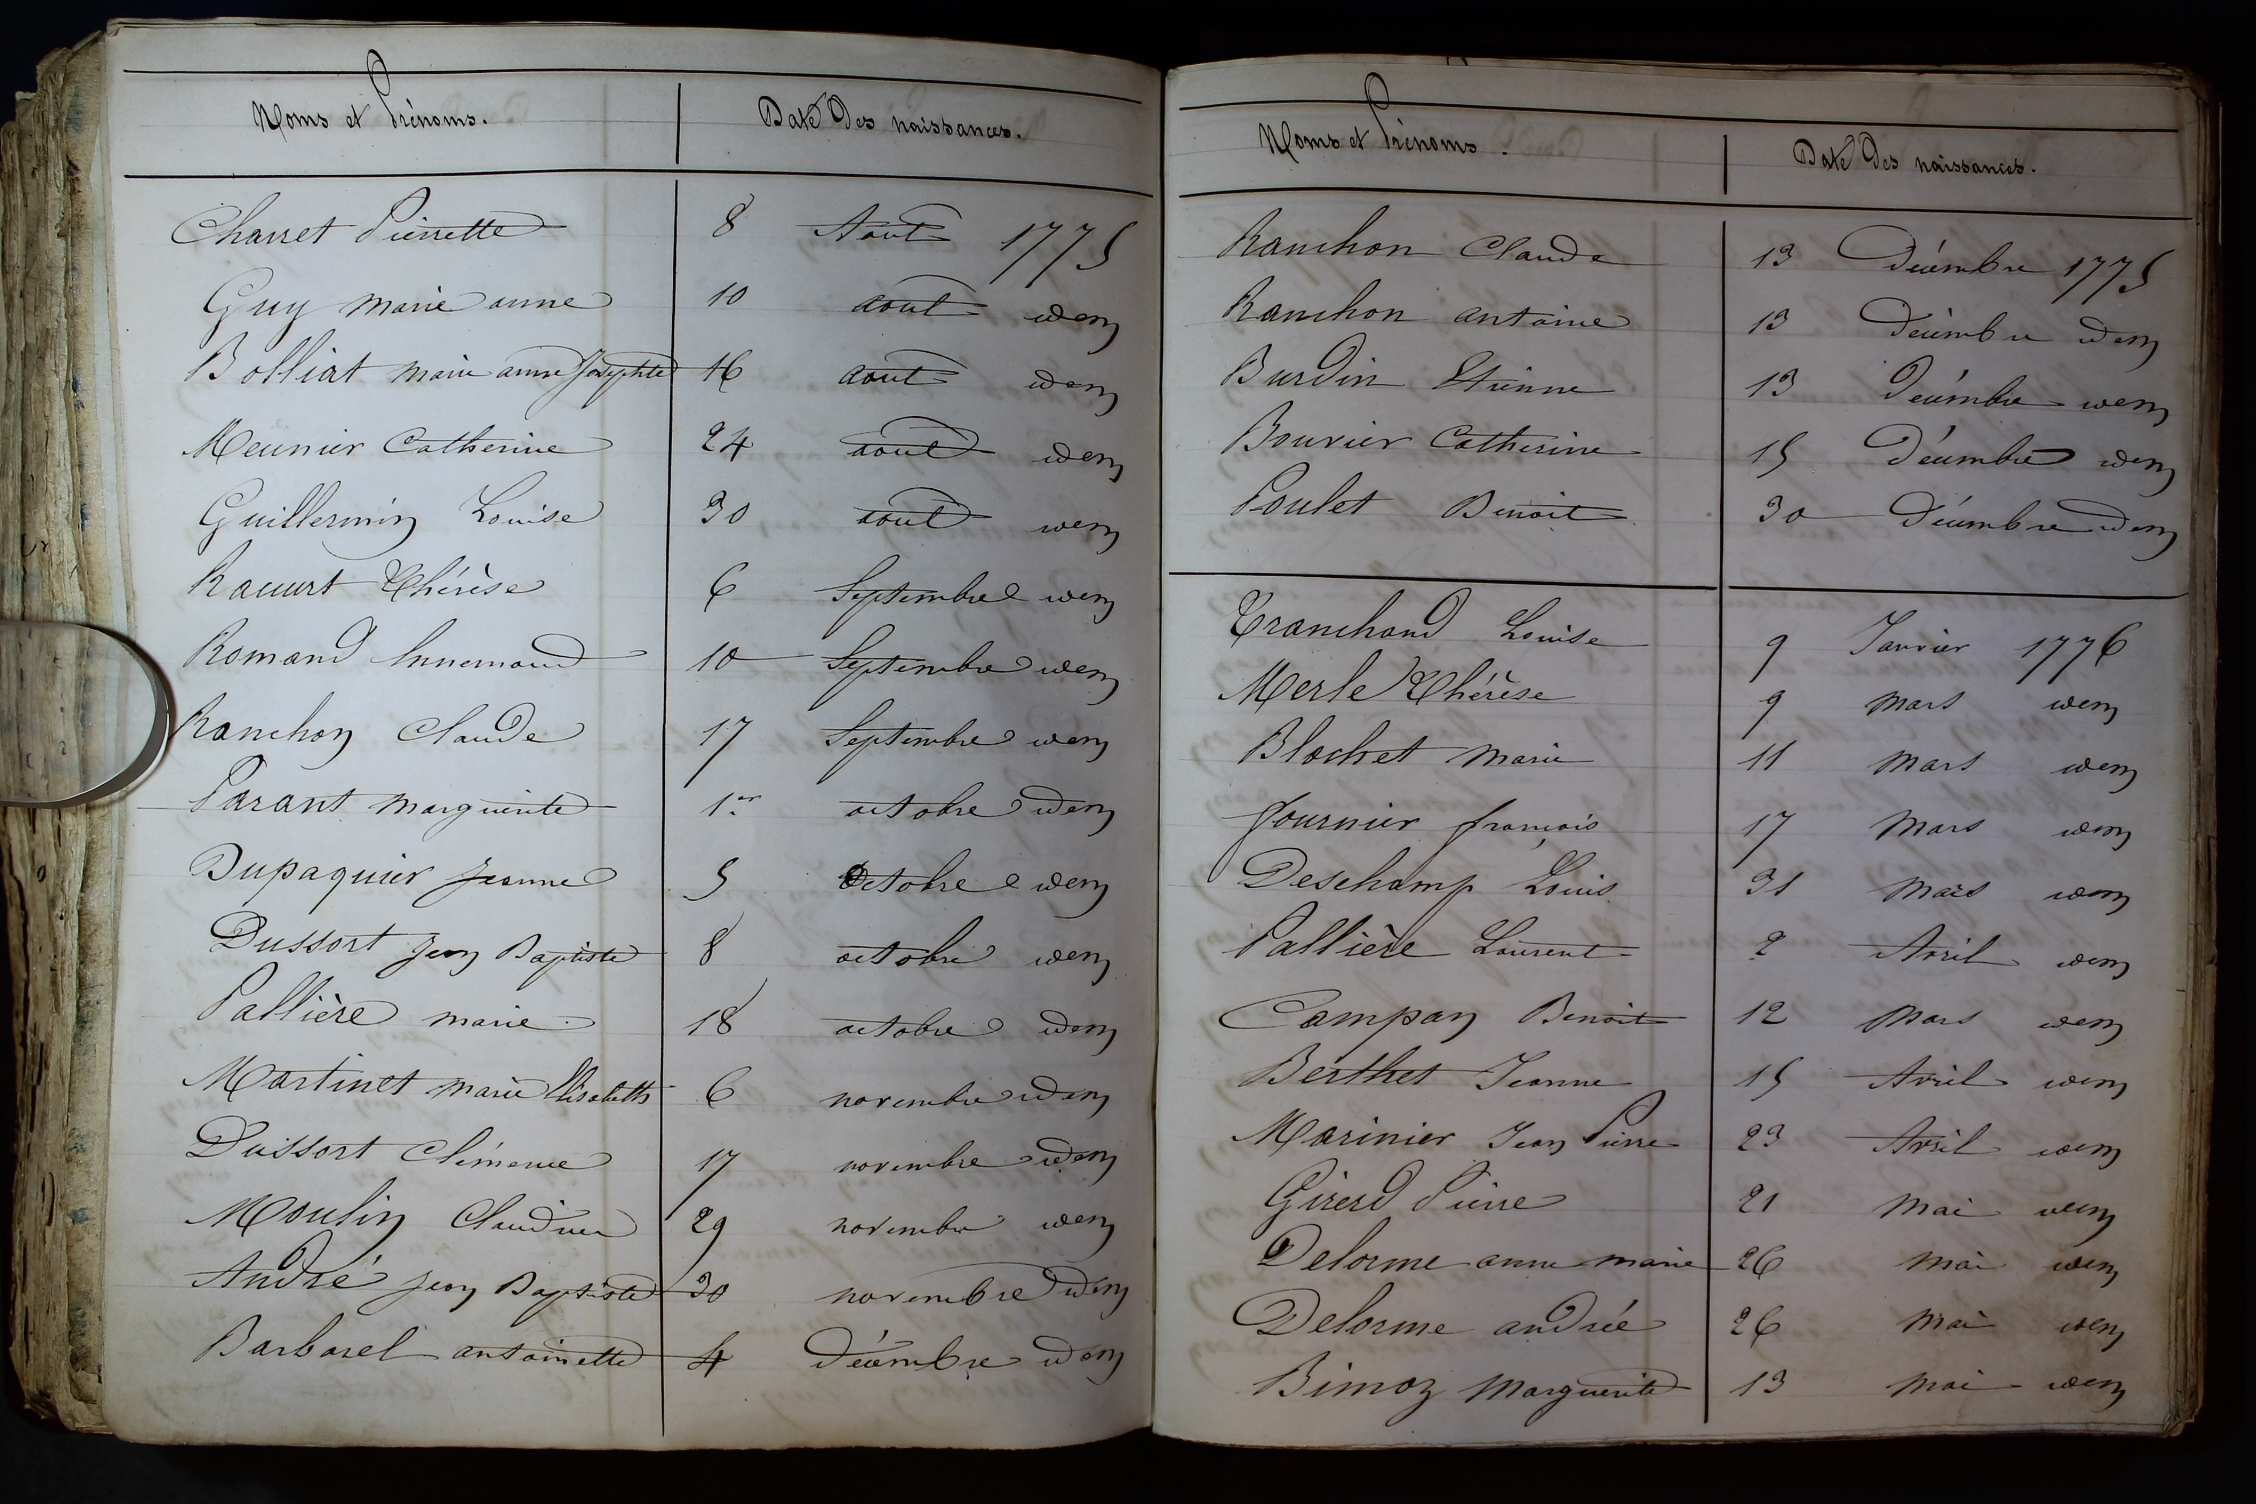 Noms et Prénoms. Date des naissances.
Charret Pierrette 8 Aout 1775
Guy marie anne 10 aout idem
Bolliat marie anne Josephte 16 aout idem
Meunier Catherine 24 aout idem
Guillermin Louise 30 aout idem
Racurt Thérèse 6 Septembre idem
Romand Ennemond 10 Septembre idem
Ranchon Claude 17 Septembre idem
Parant marguerite 1er octobre idem
Dupaquier Jeanne 5 Octobre idem
Dussort Jean Baptiste 8 octobre idem
Pallière marie 18 octobre idem
Martinet marie Elisabeth 6 novembre idem
Dussort Clémence 17 novembre idem
Moulin Claudine 29 novembre idem
André Jean Baptiste 30 novembre idem
Barbarel antoinette 4 Décembre idem
Noms et Prénoms. Date des naissances.
Ranchon Claude 13 Décembre 1775
Ranchon antoine 13 Décembre idem
Burdin Etienne 13 Décembre idem
Bouvier Catherine 15 Décembre idem
Poulet Benoit 30 Décembre idem
Tranchand Louise 9 Janvier 1776
Merle Thérèse 9 Mars idem
Blochet Marie 11 Mars idem
fournier françois 17 Mars idem
Deschamp Louis 31 Mars idem
Pallière Laurent 2 Avril idem
Campan Benoit 12 Mars idem
Berthet Jeanne 15 Avril idem
Marinier Jean Pierre 23 Avril idem
Girerd Pierre 21 Mai idem
Delorme anne marie 26 Mai idem
Delorme andrée 26 Mai idem
Bimoz Marguerite 13 Mai idem